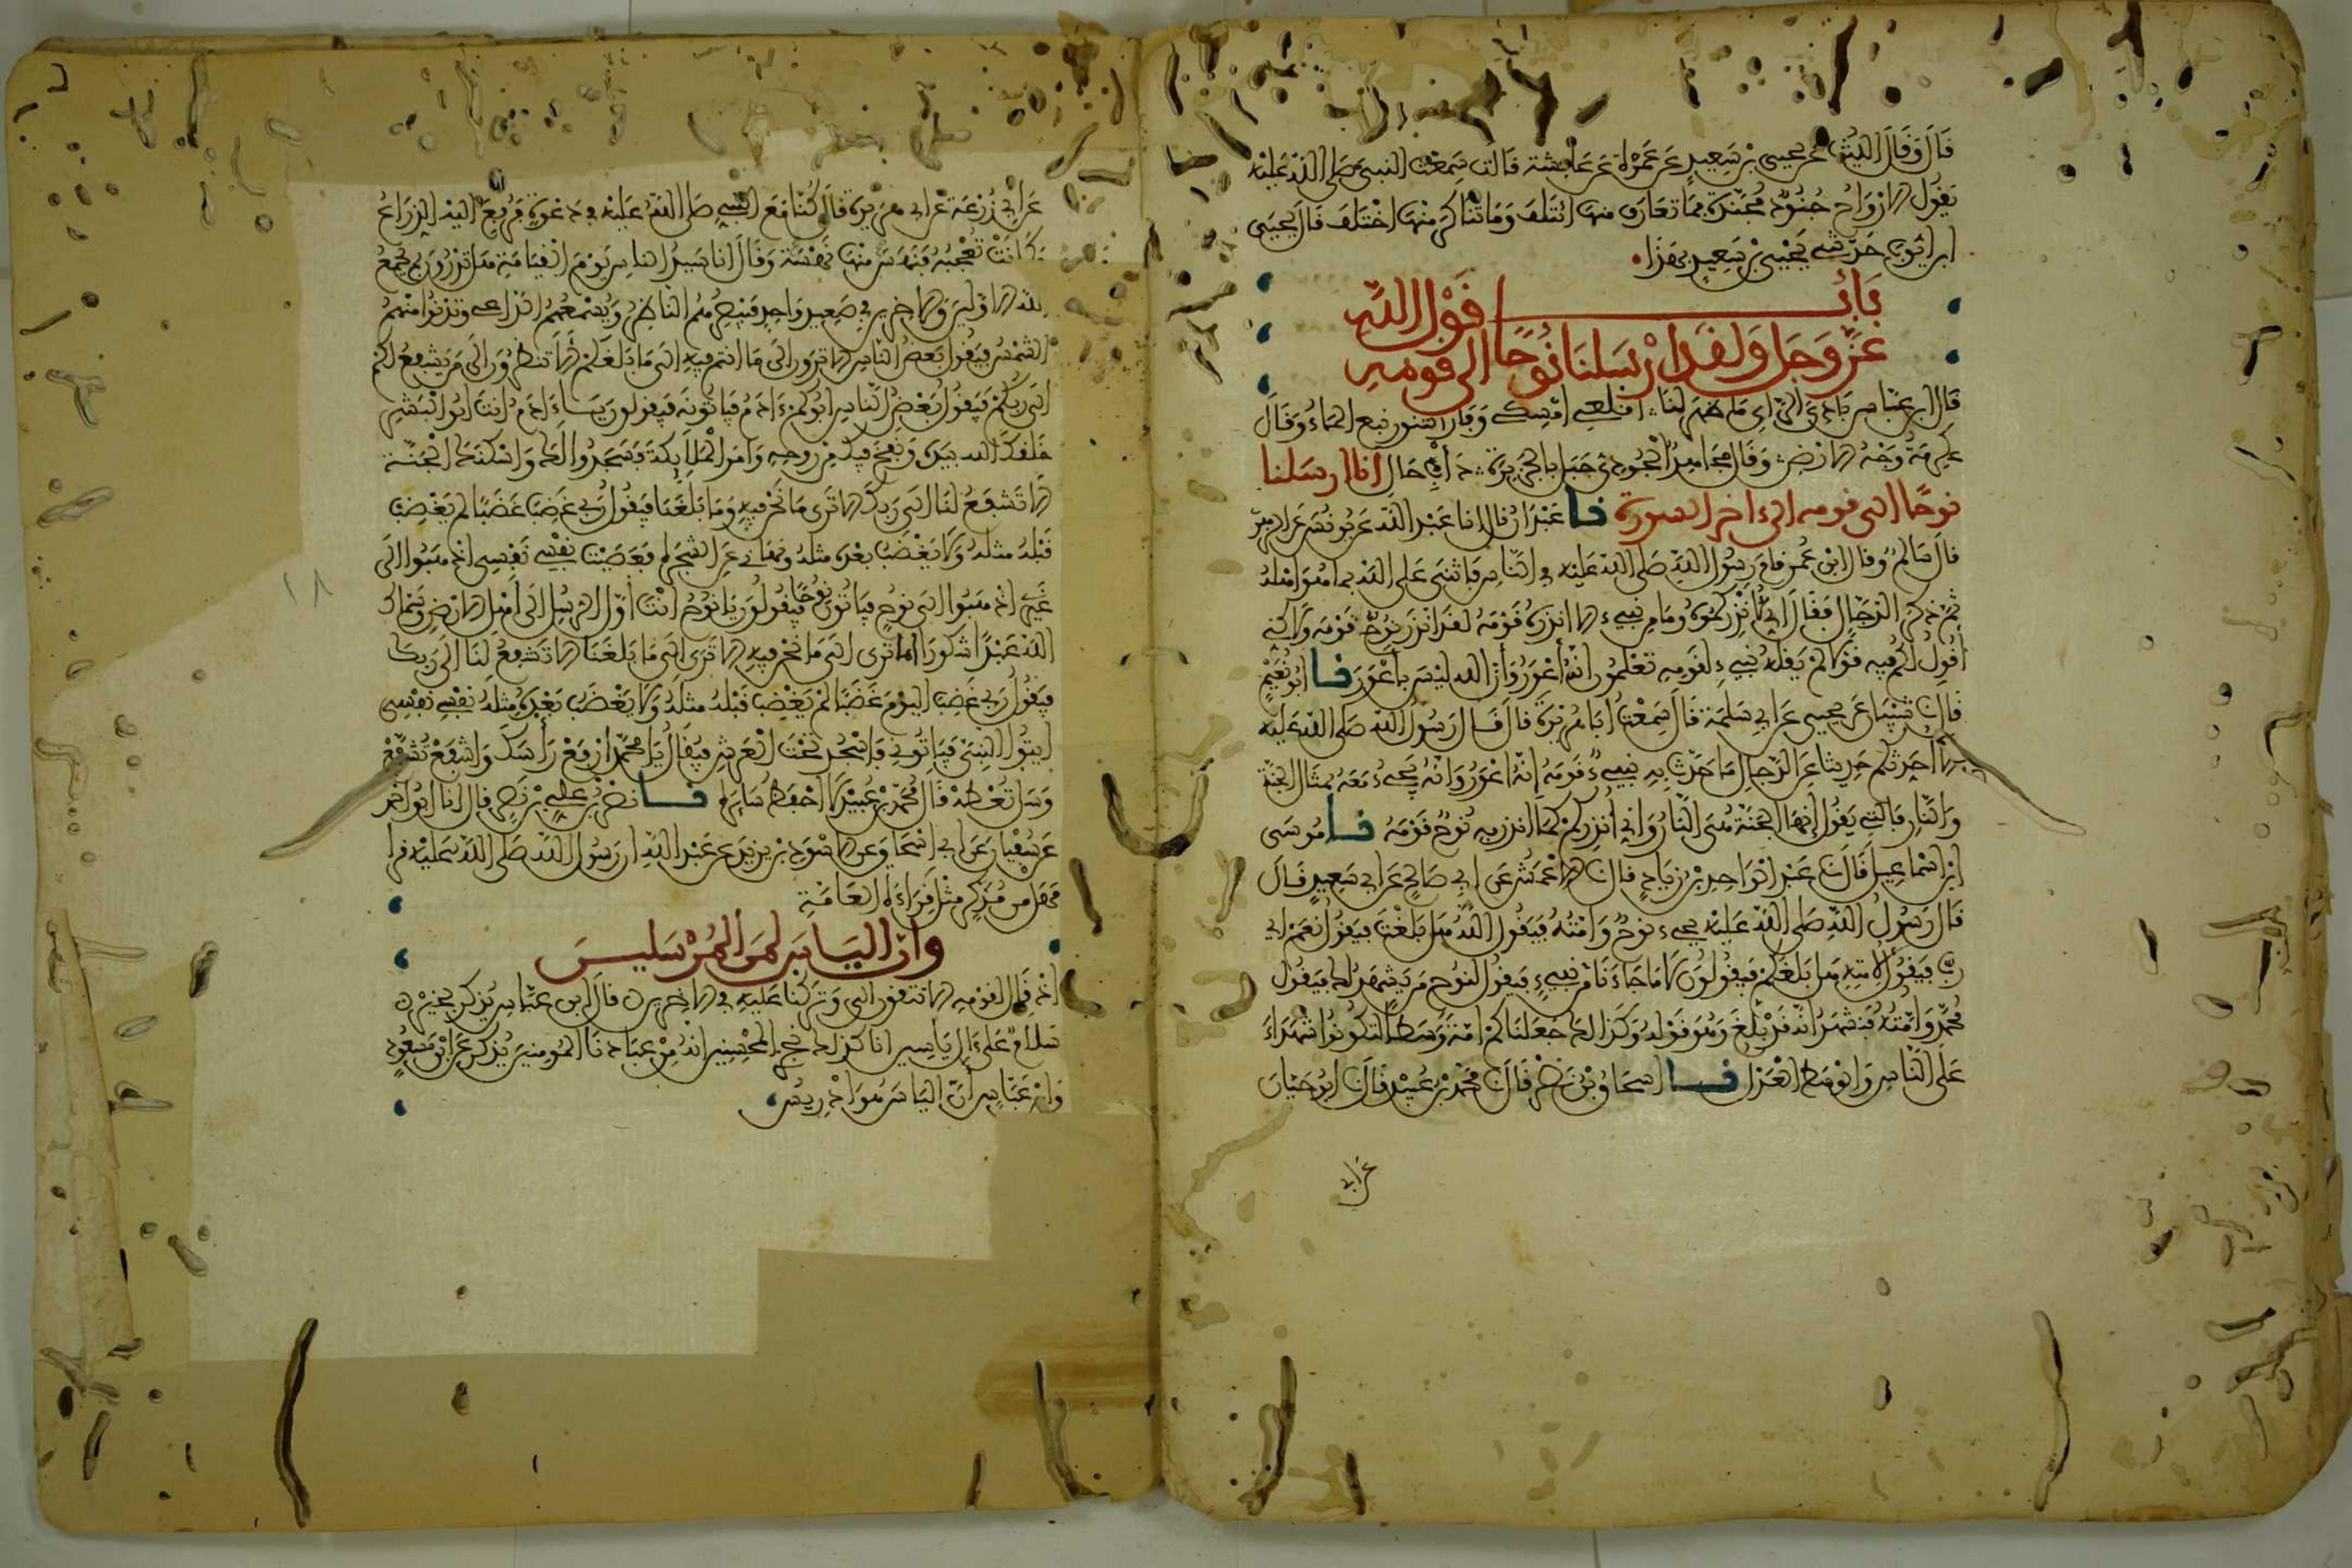 قَالَ وَقَالَ اللَّيْثُ عَن يحيى بْنِ سَعِيدٍ عَن عَمْرَةَ عَن عَائِشَة قَالت سَمِعْتُ النبىَّ صَلى اللهُ عَلَيْهِ
يَقُولُ الارْوَاحُ جُنُودٌ مُجَنَّدَةٌ فَمَا تَعَارَفَ مِنهَا ائْتَلَفَ وَمَا تَنَاكَرَ مِنْهَا اخْتَلَفَ قَالَ يحيَى
ابن ايُّوبَ حَدّثنِى يَحْيَى بْنُ سَعِيدٍ بِهَذَا
بَابُ قَوْلِ اللَّهِ
عَزَّ وَجَل وَلَقَد ارْسَلنَا نُوحًا الى قومهِ
قَال ابن عبّاس بَادِىَ الرَّأىِ مَا ظهَرَ لنَا اقلعِى امْسِكى وَفَارَ التنور نبع المَاءُ وَقَالَ
عِكرِمَةُ وَجْهُ الارْضِ وَقَال مجَاهِدٌ الْجُودِىُّ جَبَل بِالْجَزِيرَةِ دَأب حَال انا ارسَلنا
نوحًا الى قومه الى اخر السورة نا عَبْدَانُ قال انا عَبْدُ اللهِ عَن يُونُسَ عَن الزهرِىِّ
قالَ سَالم وقال ابْن عُمر قام رسُول اللهِ صَلى اللهُ عَليْهِ فى النَّاس فَاثْنَى عَلى اللهِ بما هُوَ اهْلهُ
ثُمّ ذكر الدَّجَّال فَقَالَ انِّى لانْذِرُكُمُوهُ وَمَا مِن نَبِىءٍ الا انذرَهُ قَوْمَهُ لقَد انْذَرَ نُوحٌ قَوْمَه وَلَاكنِّى
أقُولُ لكُمْ فِيهِ قَوْلًا لمْ يَقُلهُ نبىءٌ لقَومِهِ تعْلمُونَ انّهُ أعْوَرُ وَأنّ الله ليْسَ بأعْوَرَ نا ابُو نُعَيْمٍ
قالَ نا شَيْبَانُ عَن يحيى عَن ابى سَلمَةَ قَالَ سَمِعْتُ أبَا هُرَيْرَةَ قالَ قَالَ رَسُولُ اللهِ صَلى اللهُ عَليْهِ
الا أحَدِّثُكُم حَدِيثًا عَن الدّجَّالِ مَا حَدّثَ بِهِ نبىءٌ قَوْمَهُ إنّهُ اعْوَرُ وَانّهُ يَجِىءُ مَعَهُ بمثَالِ الجنّةِ
وَالنّارِ فالتِى يَقُولُ إنّهَا الجَنّةُ هِىَ النّارُ وَإنى أنْذِرُكمْ كمَا انْذَرَ بِهِ نُوحٌ قَوْمَهُ نا مُوسَى
ابْنُ اسْمَاعِيلَ قَالَ نا عَبْدُ الْوَاحِدِ بْنُ زِيَادٍ قال نا الاعْمَشُ عَن أبِى صَالحٍ عَن ابى سَعِيدٍ قَالَ
قَالَ رَسُولُ اللهِ صَلى اللهُ عَليْهِ يَجىءُ نوحٌ وَامّتُهُ فيَقُولُ اللهُ هَل بَلّغْتَ فيَقُولُ نَعَمْ اىْ
ربِّ فيَقُولُ لامّتِهِ هَل بَلّغَكمْ فَيقُولُونَ لَا مَا جَاءَنَا مِن نبِىءٍ فيَقُولُ لنُوحٍ مَن يَشْهَدُ لَك فيَقُولُ
مُحمَّدٌ وَامّتُهُ فنَشْهَدُ انّهُ قَدْ بَلّغَ وَهُوَ قَوْلُهُ وَكَذَالكَ جَعَلنَاكُمْ امّةً وَسَطًا لتَكُونُوا شُهَدَاءَ
عَلَى النَّاسِ وَالْوَسَطُ الْعَدْلُ نا إسْحَاقُ بْنُ نَصْرٍ قَالَ نا مُحَمَّدُ بْنُ عُبَيْدٍ قَالَ نا ابُو حَيّانَ
عن ابى
عَن أبِى زُرْعَةَ عَن ابى هُرَيْرَةَ قالَ كُنّا مَعَ النبِىِّ صَلى اللهُ عَليْهِ فى دَعْوَةٍ فرُفِعَ اليْهِ الذِّرَاعُ
وَكَانَتْ تُعْجِبُهُ فَنَهَسَ مِنْهَا نَهْسَةً وَقَالَ انا سَيِّدُ النّاسِ يَوْمَ الْقِيَامَةِ هَل تَدْرُونَ بِمَ يجْمَعُ
الله الاوَّلينَ وَالاخِرِينَ فِى صَعِيدٍ وَاحِدٍ فيُبْصِرُهُمُ النّاظِرُ وَيُسْمعُهُمُ الدّاعِى وَتَدْنُوا مِنْهُمُ
الشَّمْسُ فيَقُولُ بَعْضُ النّاسِ الا تَرَوْنَ الَى مَا انتُم فِيهِ الَى مَا بَلَغَكُمْ ألَا تنظُرُونَ الَى مَن يَشْفَعُ لكُمْ
الَى رَبِّكُمْ فيَقُولُ بَعْضُ النّاسِ ابُوكُمْ ءَادَمُ فيَاتُونَهُ فيَقُولُونَ يَا ءَادَمُ أنتَ ابُو الْبَشَرِ
خَلَقَكَ الله بيَدِهِ وَنَفَخَ فِيكَ مِن رُوحِهِ وَأمَرَ الْمَلَائِكَةَ فَسَجَدُوا لَكَ وَاسْكَنَكَ الْجَنّةَ
الا تَشْفَعُ لَنَا الَى رَبِّكَ الا تَرَى مَا نَحْنُ فِيهِ وَمَا بَلَغَنَا فيَقُولُ رَبِّى غَضِبَ غَضَبًا لمْ يَغْضَبْ
قَبْلَهُ مثلَهُ وَلَا يَغْضَبُ بَعْدَهُ مثلَهُ وَنَهَانِى عَن الشّجَرَةِ فَعَصَيْتُ نَفْسِى نَفْسِى اذهَبُوا الَى
غَيْرِى اذهَبُوا الَى نُوحٍ فيَاتُونَ نُوحًا فيَقُولُونَ يَا نُوحُ انْتَ أوّلُ الرُّسُلِ الَى أهْلِ الارْضِ وَسَمّاكَ
اللهُ عَبْدًا شَكُورًا اما تَرَى الَى مَا نَحْنُ فِيهِ الا تَرَى الَى مَا بَلَغَنَا الا تَشْفَعُ لنَا الَى رَبِّكَ
فيَقُولُ رَبِّى غَضِبَ اليَوْمَ غَضَبًا لمْ يَغْضَبْ قَبْلَهُ مثلَهُ وَلَا يَغْضَبُ بَعْدَهُ مثلَهُ نَفْسِى نَفْسِى
ايتُوا النّبِىَّ فيَاتُونِى فَأسْجُدُ تَحْتَ الْعَرْشِ فيُقَالُ يَا مُحَمّدُ ارْفَعْ رَأسَكَ وَاشْفَعْ تُشَفّعْ
وَسَل تُعْطَهْ قَالَ مُحَمّدُ بْنُ عُبَيْدٍ لَا احْفَظُ سَائِرَهُ نا نَصْرُ بْنُ عَلِىِّ بْنِ نَصْرٍ قال انا ابُو احْمَدَ
عَن سُفْيَانَ عَن ابِى اسْحَاقَ عَن الاسْوَدِ بْنِ يَزِيدَ عَن عَبْدِ اللهِ ان رَسُولَ اللهِ صَلى اللهُ عَليْهِ قرأ
فَهَل مِن مُدّكِرٍ مِثْلَ قِرَاءَةِ الْعَامَّةِ
وانّ اليَاسَ لمِنَ المُرْسَلِينَ
اذْ قَالَ لقَوْمِهِ الا تَتّقُونَ الَى وَتَرَكْنَا عَلَيْهِ فِى الاخِرِينَ قَالَ ابن عبّاس يُذكَرُ بِخَيْرٍ
سَلَامٌ عَلَى ءَالِ يَاسِينَ انا كَذَلكَ نَجْزِى الْمُحْسِنِينَ انّهُ مِنْ عِبَادِنَا الْمُومِنِينَ يُذْكَرُ عَن ابْنِ مَسْعُودٍ
وَابْنِ عَبّاسٍ أنّ اليَاسَ هُوَ ادْرِيسُ
١٨